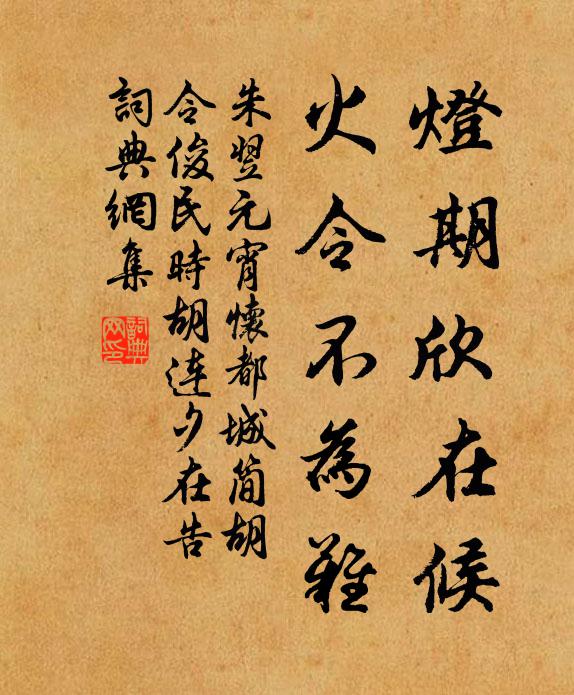 燈期欣在候
火令不為難
朱翌元宵懷都城簡胡
令俊民時胡連夕在告
詞典網集
詞典网印